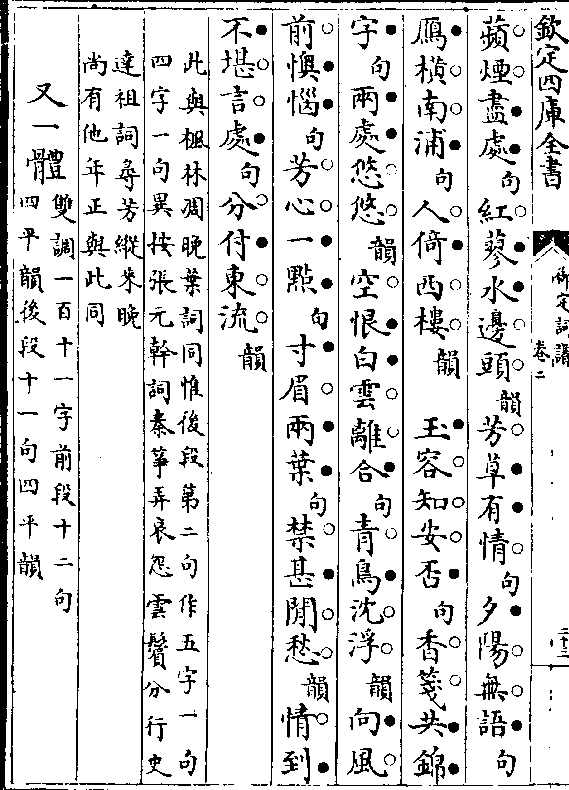 欽定四庫全書
御定詞譜
卷二
二十三
蘋煙盡處句紅蓼水邊頭韻芳草有情句夕陽無語句
鴈橫南浦句人倚西樓韻 玉容知安否句香箋共錦
字句兩處悠悠韻空恨白雲離合句青鳥沈浮韻向風
前懊惱句芳心一點句寸眉兩葉句禁甚閒愁韻情到
不堪言處句分付東流韻
此與楓林凋晚葉詞同惟後段第二句作五字一句
四字一句異按張元幹詞秦箏弄哀怨雲鬢分行史
達祖詞尋芳縱來晚
尚有他年正與此同
又一體
雙調一百十一字前段十二句
四平韻後段十一句四平韻